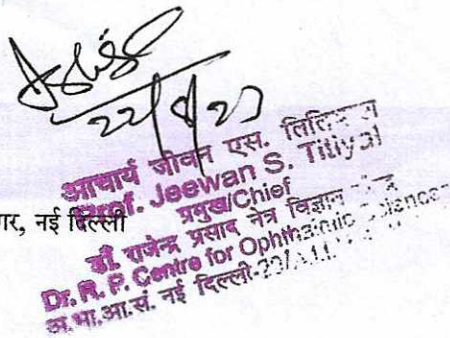 22/8/23
आचार्य जीवन एस.
Prof. Jeewan S. Titiyal
प्रमुख/Chief
गर, नई दिल्ली
डॉ. राजेन्द्र प्रसाद नेत्र विज्ञान
Dr. R. P. Centre for Ophthalmic Sciences
अ.भा.आ.सं. नई दिल्ली-29/A.I.I.